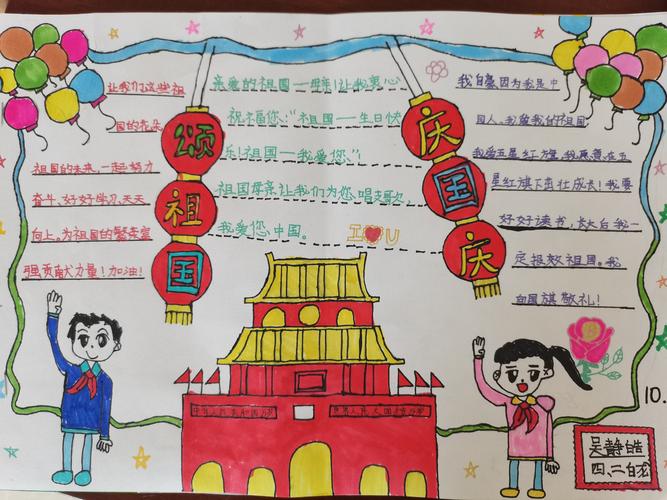 让我们这些祖
国的花朵
祖国的未来,一起努力
奋斗,好好学习、天天
向上。为祖国的繁荣富
强贡献力量!加油!
颂祖国
亲爱的祖国一母亲!让我衷心
祝福您:“祖国一生日快
乐!祖国一我爱您!
祖国母亲让我们为您唱支歌,
我爱您,中国。
I U
庆国庆
我自豪因为我是中
国人,我爱我的祖国
我爱五星红旗,我愿意在五
星红旗下茁壮成长!我要
好好读书,长大后我一
定报效祖国。我
向国旗敬礼!
中华人民共和国万岁
世界人民大团结万岁
10.
吴静皓
四、二